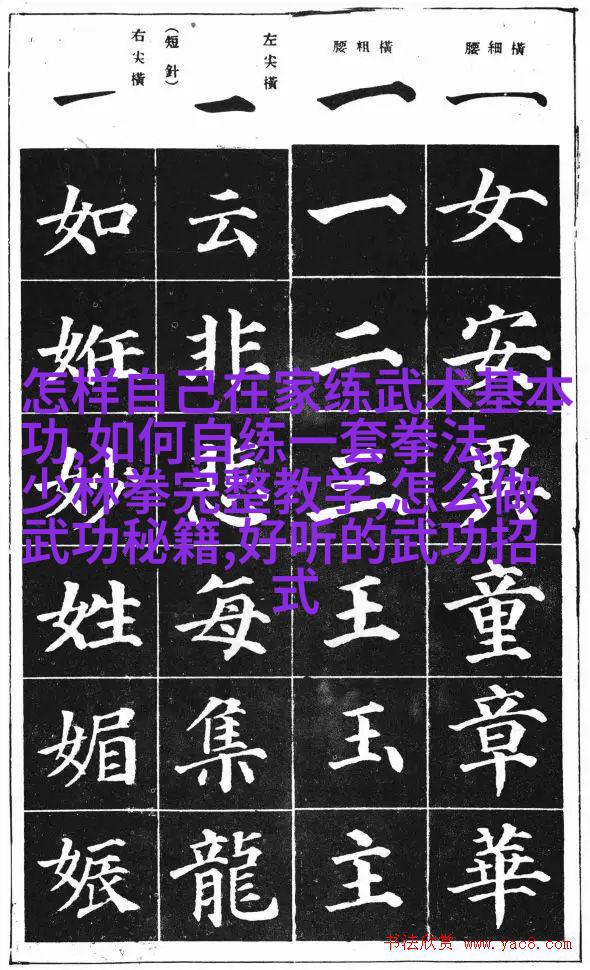 橫細腰
一
女
安
童
章
華
橫粗腰
一
一
二
三
王
玉
主
左尖橫
一
云
非
悲
每
集
龍
（短針）
右尖橫
一
如
姙
妙
姓
媚
娠
怎样自己在家练武术基本
功,如何自练一套拳法,
少林拳完整教学,怎么做
武功秘籍,好听的武功招
式
书法欣赏 www.yac8.com